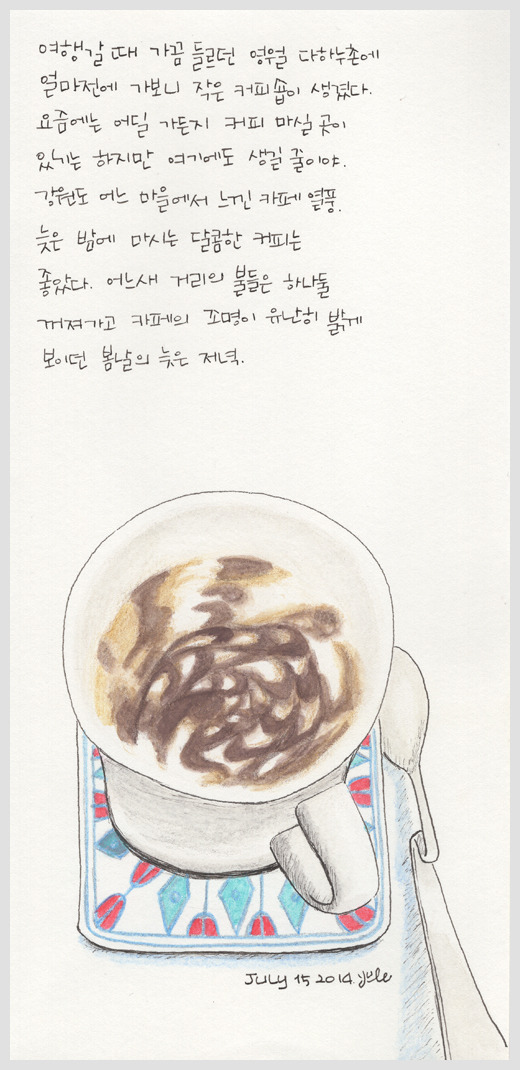 여행갈 때 가끔 들르던 영월 다하누촌에
얼마전에 가보니 작은 커피숍이 생겼다.
요즘에는 어딜 가든지 커피 마실 곳이
있기는 하지만 여기에도 생길 줄이야.
강원도 어느 마을에서 느낀 카페 열풍.
늦은 밤에 마시는 달콤한 커피는
좋았다. 어느새 거리의 불들은 하나둘
꺼져가고 카페의 조명이 유난히 밝게
보이던 봄날의 늦은 저녁.
JULY 15 2014. yule